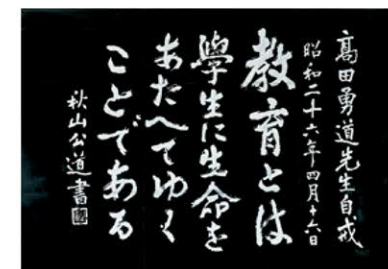 髙田勇道先生自戒
昭和二十六年四月十六日
教育とは
學生に生命を
あたへてゆく
ことである
秋山公道書